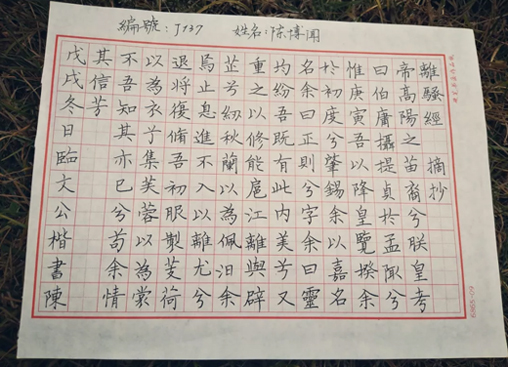 編號:J137 姓名:陈博闻
離騷經 摘抄
帝高陽之苗裔兮朕皇考
曰伯庸攝提貞於孟陬兮
惟庚寅吾以降皇覽揆余
於初度兮肇錫余以嘉名
名余曰正則兮字余曰靈
均紛吾既有此內美兮又
重之以修能扈江離與辟
芷兮紉秋蘭以為佩汩余
焉止息進不入以離尤兮
退將復脩吾初服製芰荷
以為衣兮集芙蓉以為裳
不吾知其亦已兮苟余情
其信芳
戊戌冬日臨文公楷書陳